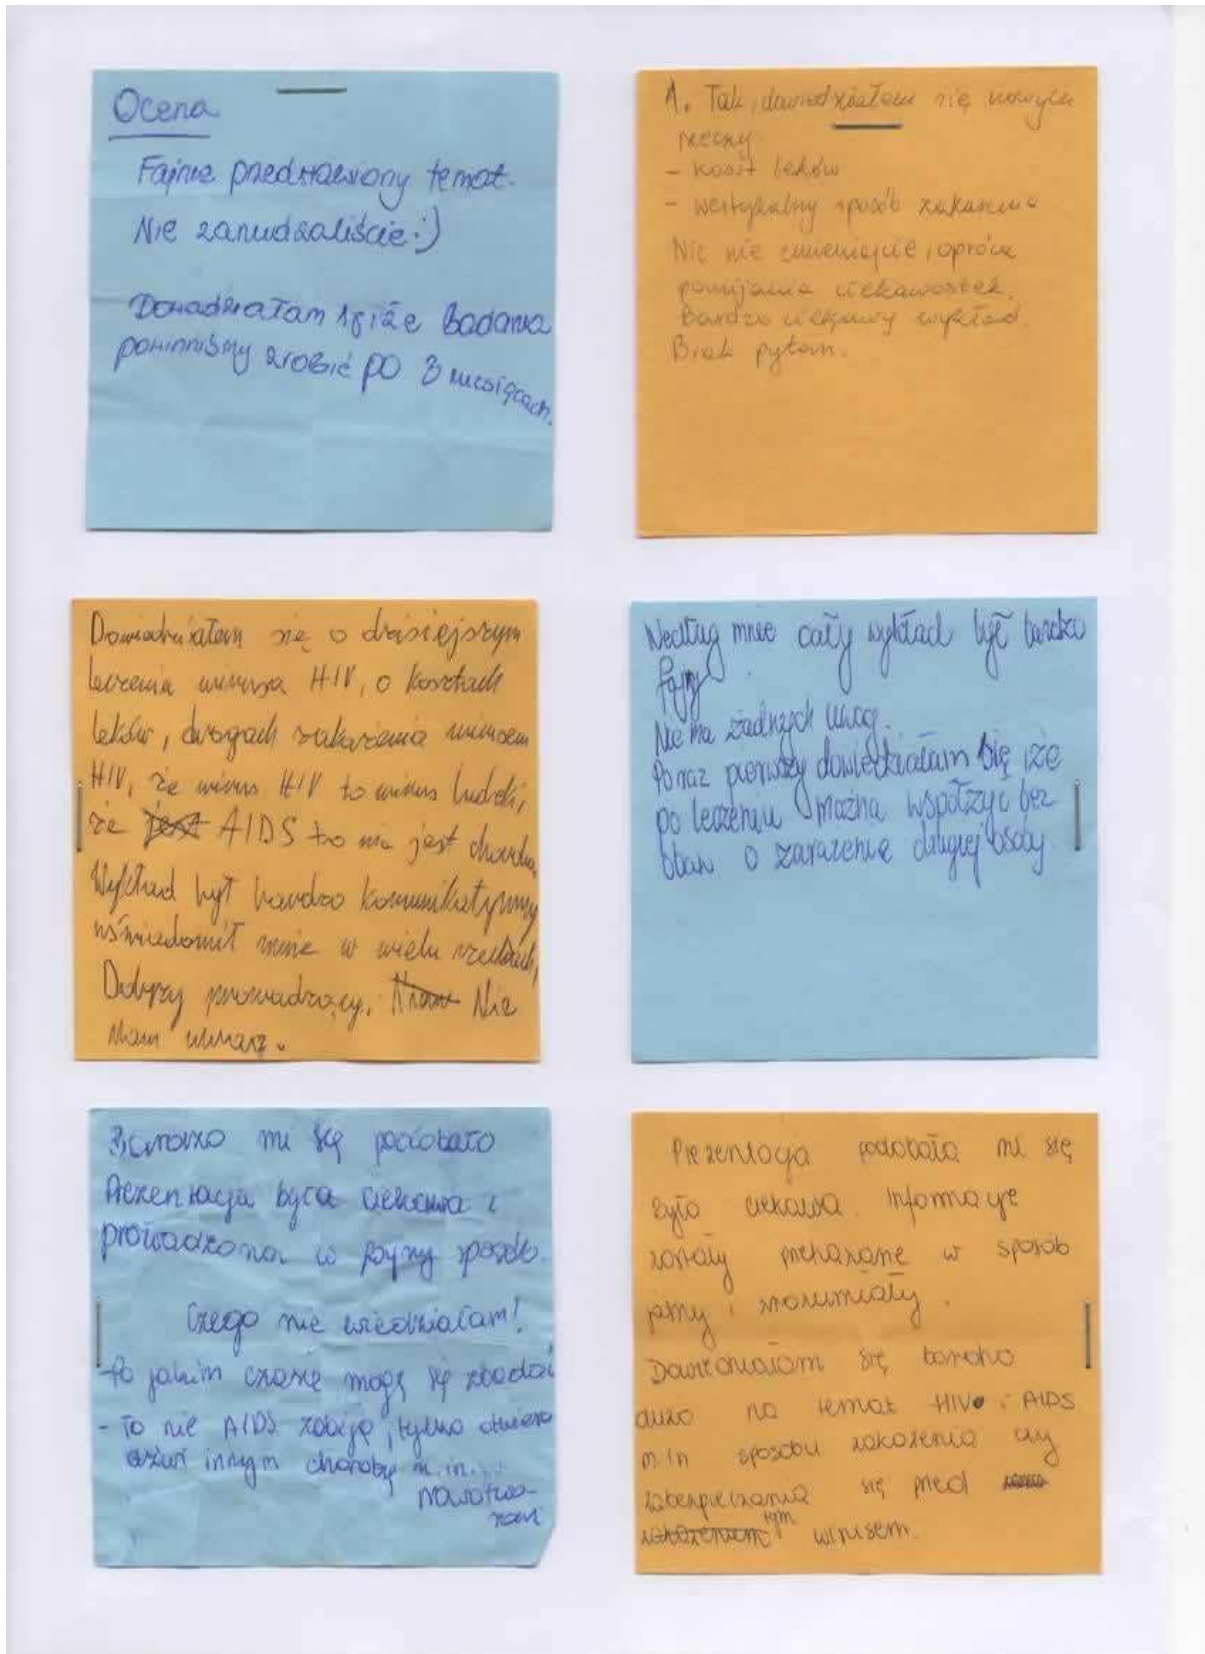 Ocena
Fajnie przedstawiony temat.
Nie zanudzaliście :)
Dowiedziałam się że badania
powinniśmy zrobić po 3 miesiącach.
1. Tak, dowiedziałem się nowych
rzeczy.
- koszt leków
- wertykalny sposób zakażenia
Nic nie zmieniajcie, oprócz
pomijania ciekawostek.
Bardzo ciekawy wykład.
Brak pytań.
Dowiedziałem się o dzisiejszym
leczeniu wirusa HIV, o kosztach
leków, drogach zakażenia wirusem
HIV, że wirus HIV to wirus ludzki,
że jest AIDS to nie jest choroba
Wykład był bardzo komunikatywny
uświadomił mnie w wielu rzeczach,
Dobrzy prowadzący. Nie
Mam uwag.
Według mnie cały wykład był bardzo
fajny
Nie ma żadnych uwag.
Po raz pierwszy dowiedziałam się iże
po leczeniu można współżyć bez
obaw o zarażenie drugiej osoby
Bardzo mi się podobało
Prezentacja była ciekawa i
prowadzona w fajny sposób.
Czego nie wiedziałam!
- Po jakim czasie mogę się zbadać
- To nie AIDS zabija, tylko otwiera
drzwi innym choroby m.in.
nowotwo-
rom
Prezentacja podobała mi się
była ciekawa. Informacje
zostały przekazane w sposób
jasny i zrozumiały.
Dowiedziałam się bardzo
dużo na temat HIV i AIDS
m.in sposobu zakażenia czy
zabezpieczania się przed
zakażeniem tym wirusem.